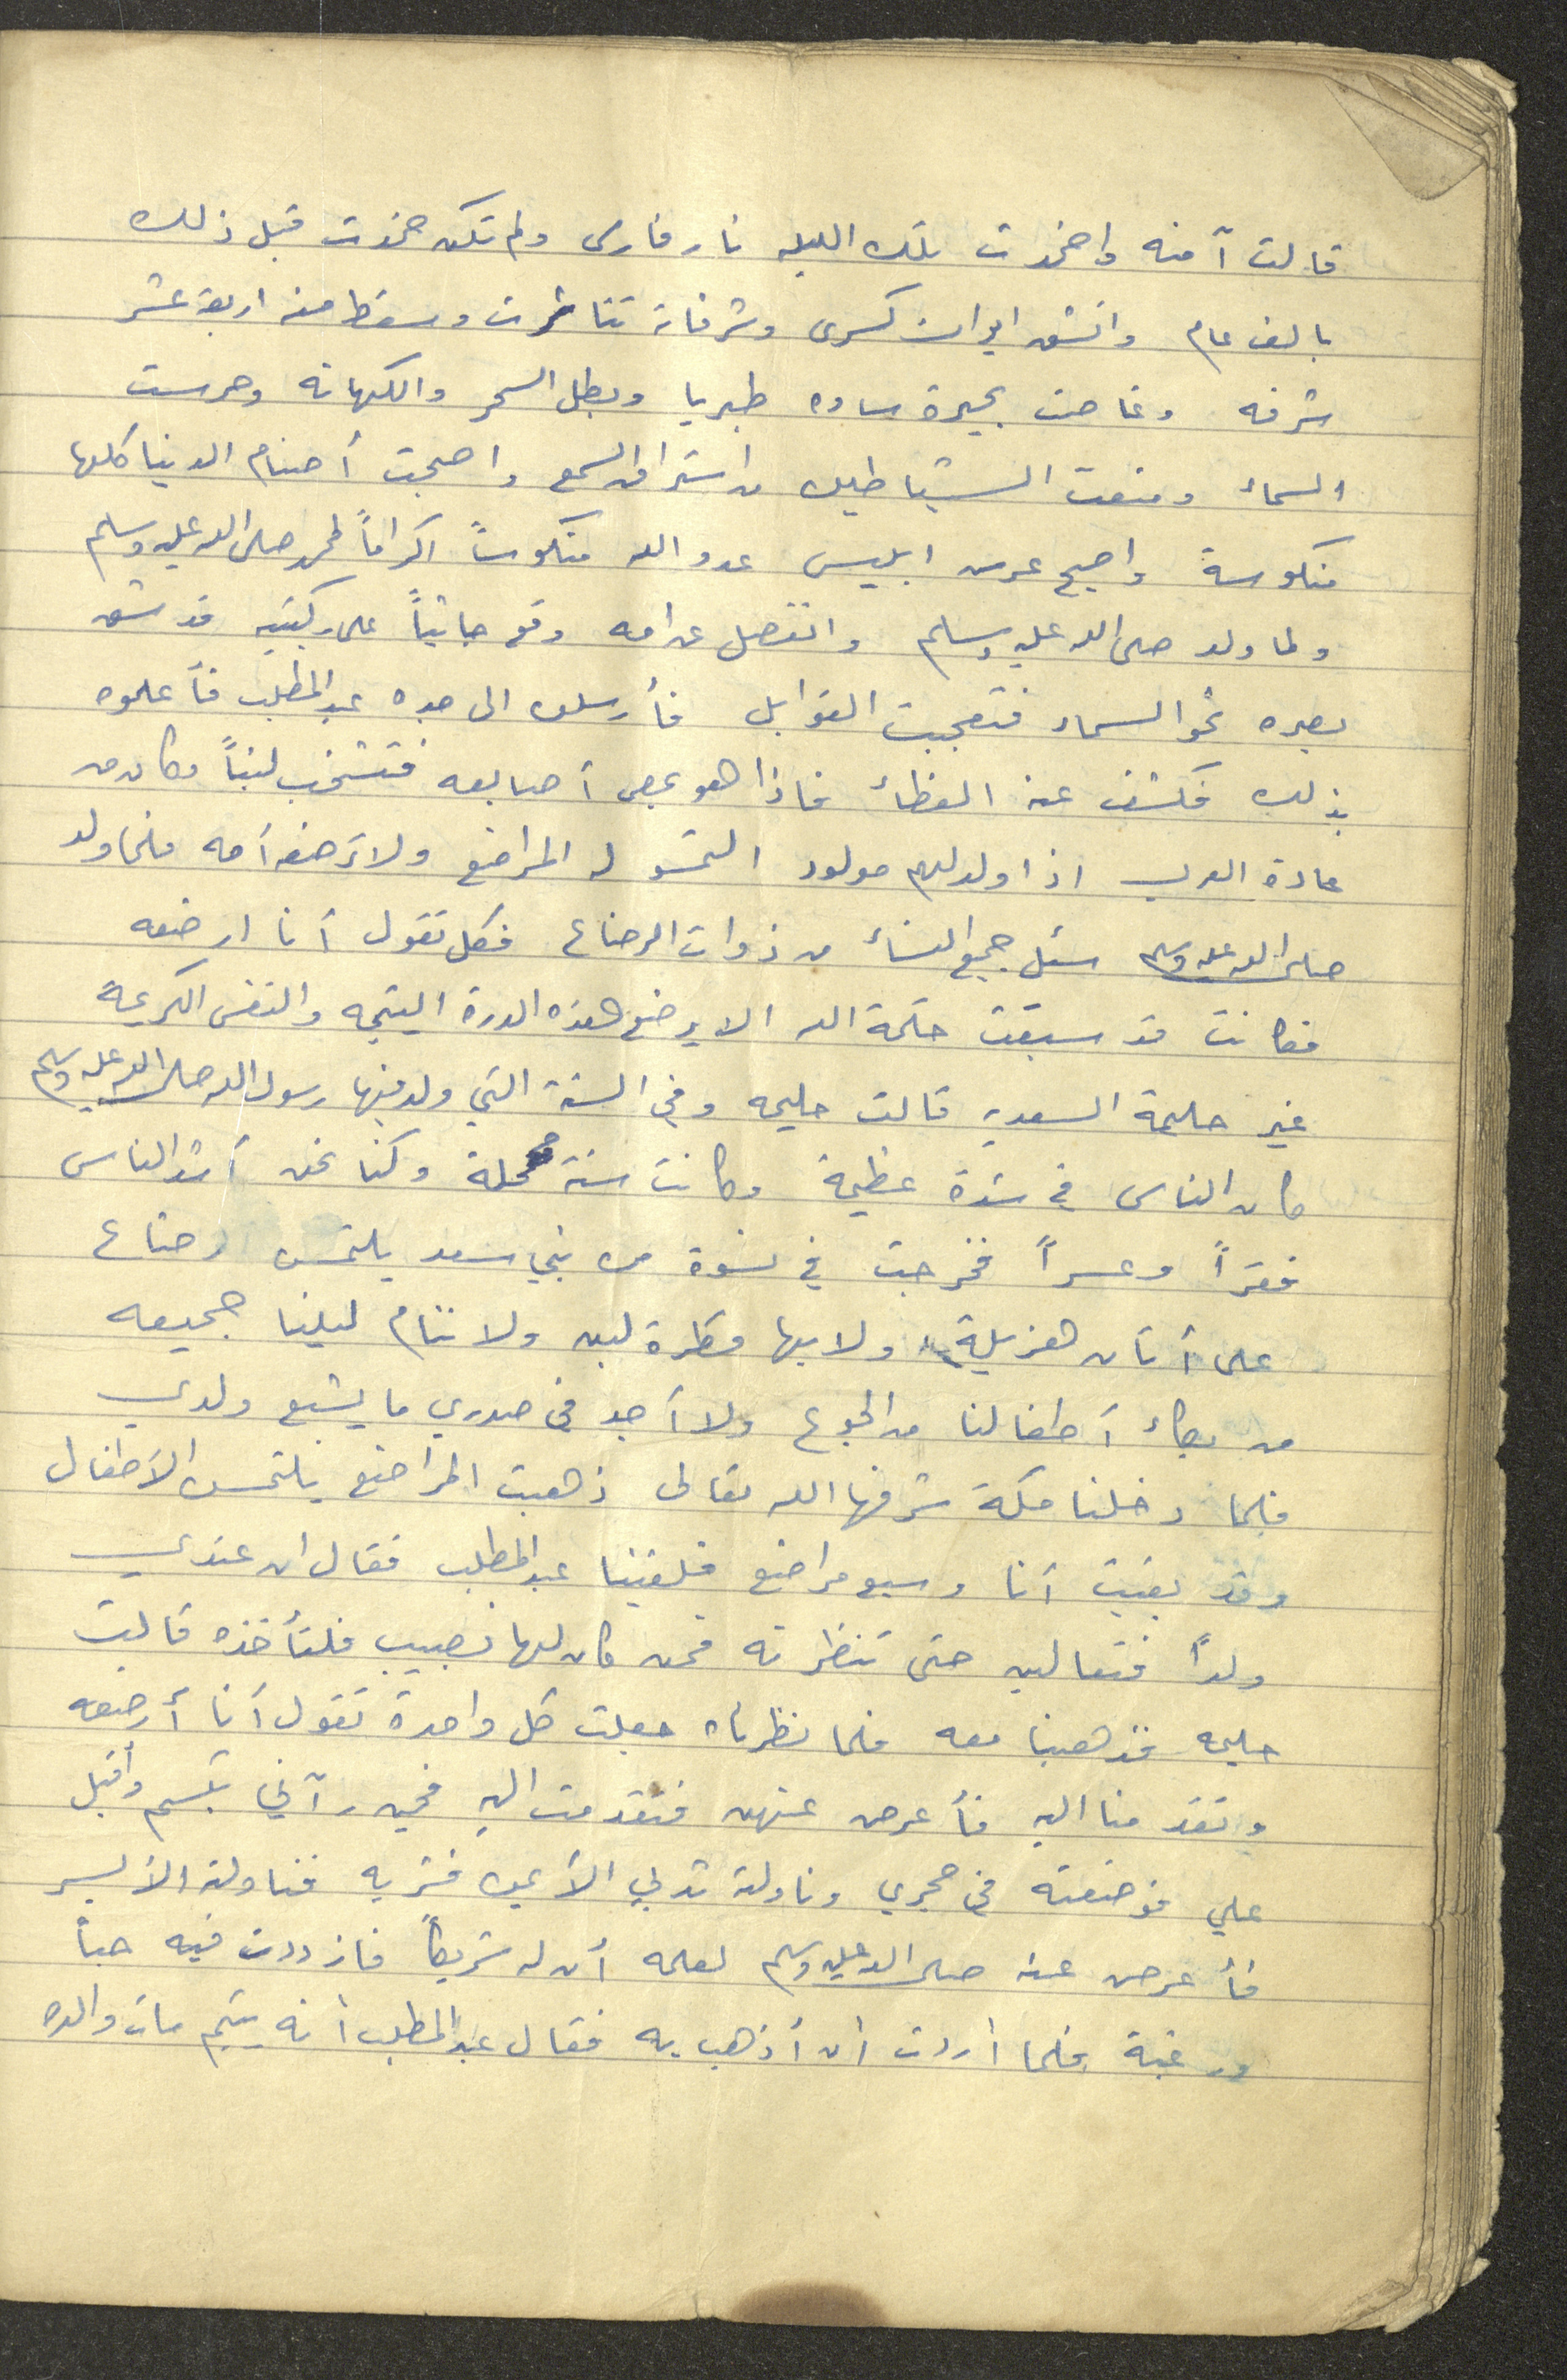 قالت آمنه واخمدت تلك الليله نار فارس ولم تكن خمدت قبل ذلك
بالف عام وانشق ايوان كسرى وشرفاته تناثرت وسقط منه اربعة عشر
شرفه وغاصت بحيرة ساوه طبريا وبطل السحر والكهانه وحرست
السماء ومنعت الشياطين من استراق السمع واصبحت أصنام الدنيا كلها
منكوسةً واصبح عرش ابليس عدو الله منكوساً اكراماً لمحمد صلى الله عليه وسلم
ولما ولد صلى الله عليه وسلم وانفصل عن امه وقع جاثياً على ركبتيه قد شق
بصره نحو السماء فتعجبت القوابل فأرسلن الى جده عبد المطلب فأعلموه
بذلك فكشف عنه الغطاء فاذا هو يمص أصابعه فتشخب لبناً وكان من
عادة العرب اذا ولد لهم مولود التمسو له المراضع ولا ترضعه أمه فلما ولد
صلى الله عليه وسلم سئل جميع النساء من ذوات الرضاع فكل تقول أنا ارضعه
فكانت قد سبقت حكمة الله الا يرضع هذه الدرة اليتيمه والنفس الكريمة
غير حليمة السعديه قالت حليمه وفي السنة التي ولد فيها رسول الله صلى الله عليه وسلم
كان الناس في شدة عظيمة وكانت سنة محلة وكنا نحن أشد الناس
فقراً وعسراً فخرجت في نسوة من بني سعد يلتمسن رضاع
على أتان هزيلة ولا بها قطرة لبن ولا ننام ليلنا جميعه
من بكاء أطفالنا من الجوع ولا أجد في صدري ما يشبع ولدي
فلما دخلنا مكة شرفها الله تعالى ذهبت المراضع يلتمسن الأطفال
وقد بقيت أنا وسبع مراضع فلقينا عبد المطلب فقال ان عندي
ولداً فتعالين حتى تنظرنه فمن كان لها نصيب فلتأخذه قالت
حليمه فذهبنا معه فلما نظرناه جعلت كل واحدة تقول أنا أرضعه
وتقدمنا اليه فأعرض عنهن فتقدمت اليه فحين رآني تبسم وأقبل
علي فوضعته في حجري وناولته ثديي الأيمن فشربه فناولته الأيسر
فأعرض عنه صلى الله عليه وسلم لعلمه أن له شريكاً فازددت فيه حباً
ورغبة فلما أردت أن أذهب به فقال عبد المطلب أنه يتيم مات والده